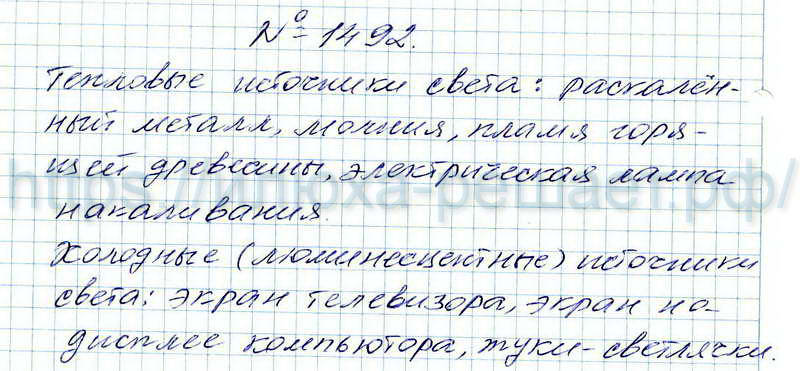 № 1492.
Тепловые источники света: раскалён-
ный металл, молния, пламя горя-
щей древесины, электрическая лампа
накаливания.
Холодные (люминесцентные) источники
света: экран телевизора, экран на
дисплее компьютора, жуки-светлячки.